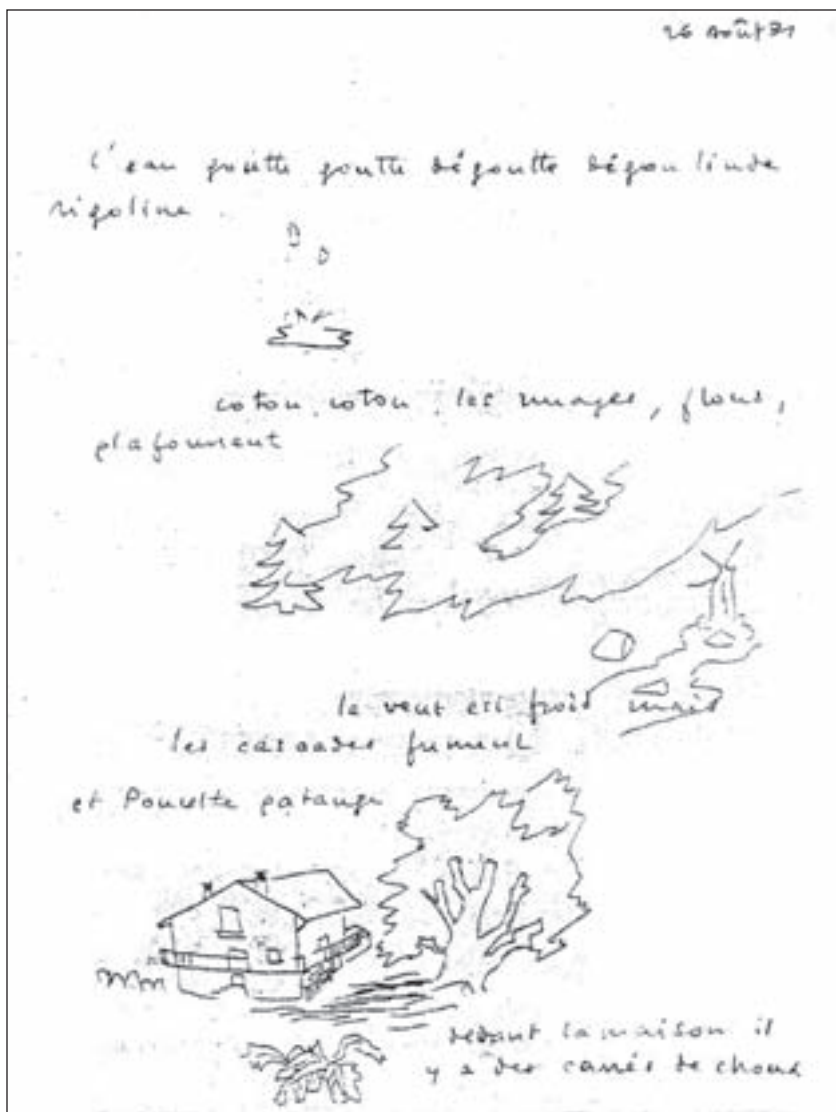 26 Août 71
l'eau goutte goutte dégoutte dégouline
rigoline
coton, coton, les nuages, flous,
plafonnent
le vent est frois mais
les cascades fument
et Poucette patauge
devant la maison il
y a des carrés de choux